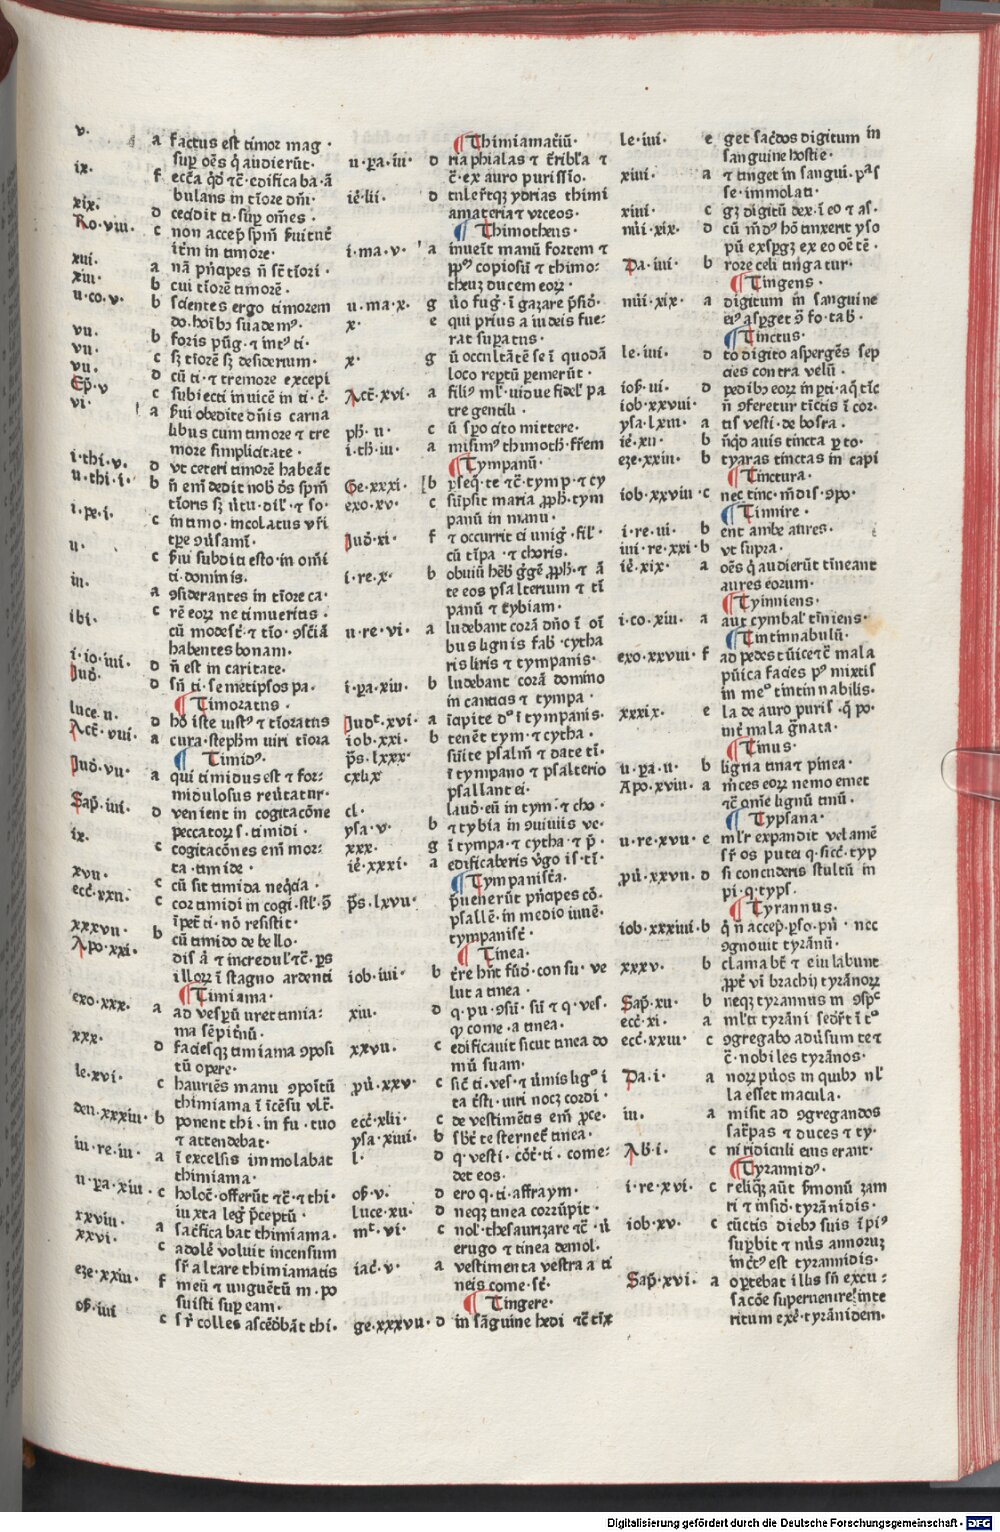 v. a factus est timor mag·
sup̱ oēs q̇ audierūt·
ix. f ecc̄a q̇d ⁊c̄· edificaba·ā
bulans in tīore dn̄i·
xix. d cecidit ti·sup̱ om̄es·
Ro·viii· c non accep̱ sp̄m ẜuitut̄
iter̄m in timore·
xiii. a nā pn̄cipes n̄ st̄ tīori·
xiii. b cui tīorē timorē·
ii·co·v· b scientes ergo timorem
do·hoībꝫ suademꝰ·
vii. b foris pūg·⁊ intꝰ ti·
vii. c sꝫ tīorē sꝫ desiderium·
vii. d cū ti·⁊ tremore excepi
Ep̄·v c subiecti inuicē in ti·c̄·
vi· a ẜui obedite dn̄is carna
libus cum timore ⁊ tre
more simplicitate·
i·thi·v· d vt ceteri timorē habeāt
ii·thi·i· b n̄ eni̅ dedit nob̄ ds̄ sp̄m
tīoris sꝫ v̄tu·dil̄·⁊ so·
i·pe·i· c in timo·incolatus vr̄i
tp̄e ꝯūsami̅·
ii· c ẜui subditi esto·in om̄i
ti·dominis·
iii. a ꝯsiderantes in tīore ca·
ibi· c rē eoꝝ ne timueritis·
cū modest̄·⁊ tīo·ꝯsciā
habentes bonam·
i·io·iiii· d n̄ est in caritate·
Jud̄· d sn̄ ti·semetipsos pa·
¶Timoratus·
luce·ii· d hō iste iustꝰ ⁊ tīoratus
Act̄·viii· a cura·steph̄m viri tīora
¶ Timidꝰ·
Jud̄·vii· a qui timidus est ⁊ for·
midulosus reūtatur·
Sap̄·iiii· d venient in cogitacōne
peccatoꝝ s·timidi·
ix. c cogitacōnes eni̅ mor·
ta·timide·
xvii· c cū sit timida neq̄cia·
ecc̄·xxii· c cor timidi in cogi·stl̄·ꝯ
īpet̄ ti·nō resistit·
xxxvii· b cū timido de bello·
Apo·xxi· dis ā ⁊ incredul̄ ⁊c̄·ps
illoꝝ ī stagno ardenti
¶Timiama·
exo·xxx· a ad vesp̱ū vret timia:
ma sēpit̄nū·
xxx· d faciesqꝫ timiama ꝯposi
tū opere·
le·xvi· c hauriēs manu ꝯpoītū
thimiama ī īcēsu vlt̄·
deu·xxxiii· b ponent thi·in fu·tuo
⁊ attendebat·
iii·re·iii· a ī excelsis immolabat
thimiama·
ii·pa·xiii· c holoc̄·offerūt ⁊c̄·⁊ thi·
iuxta leg̱ p̄ceptū·
xxviii· a sac̄ficabat thimiama·
xxvi· c adolē voluit incensum
sr̄ altare thimiamatis
eze·xxiii· f meū ⁊ unguētū m·po
suisti sup̱ eam·
os̄·iiii c sr̄ colles ascēdebāt thi·
¶Thimiamat̄iū·
ii·pa·iiii· d ria phialas ⁊ t̄ribl̄a ⁊
c̄·ex auro purissīo·
ie̅·lii· d tuler̄tqꝫ ydrias thimi
amateria ⁊ vrceos·
¶ Thimotheus·
i·ma·v· a inuei̅t manū fortem ⁊
pp̄ꝰ copiosū ⁊ thimo:
theuꝫ ducem eoꝝ·
ii·ma·x· g v̄o fug̱·ī gazare p̄siō·
x· e qui prius a iudeis fue·
rat sup̱atus·
x· g v̄ occultātē se ī quodā
loco rep̱tū p̱emerūt·
Act̄·xvi· a filiꝰ ml̄·uidue fidel̄ pa
tre gentili·
ph̄·ii· c v̄ sp̱o cito mittere·
i·th̄·iii· a misimꝰ thimoth̄·fr̄em
¶Tympanū·
Ge·xxxi· b p̱seq̄·te ⁊c̄·tymp·⁊ cy
exo·xv· c sūpsit maria ꝓph̄·tym
panū in manu·
Jud̄·xi· f ⁊ occurrit ei unig̱·fil̄·
cū tīpa·⁊ choris·
i·re·x· b obuiū heb̄ gꝯgē ꝓph̄·⁊ ā
te eos psalterium ⁊ tī
panū ⁊ tybiam·
ii·re·vi· a ludebant corā dn̄o ī oī
bus lignis fab̄·cytha
ris liris ⁊ tympanis·
i·pa·xiii· b ludebant corā domino
in canticis ⁊ tympa·
Judc̄·xvi· a īcipite dꝰ ī tympanis·
iob·xxi· b tenēt tym·⁊ cytha·
p̄s·lxxx· sūite psalm̄ ⁊ date tī·
cxlix ī tympano ⁊ psalterio
psallant ei·
cl· laud·eū in tym·⁊ cho·
ysa·v· b ⁊ tybia in ꝯuiuiis ve·
xxx· g ī tympa·⁊ cytha ⁊ p̄·
ie̅·xxxi· a edificaberis v̄go is·tī·
¶Tympanist̄a·
p̄s·lxvii· p̄uenerūt pn̄cipes cō·
psallē·in medio iuuē·
tympanist̄·
¶ Tinea·
iob·iiii· b t̄re hn̄t fūd·consu·ve
lut a tinea·
xiii· d q·pu·ꝯsū·sū ⁊ q·ves·
qͥ come·a tinea·
xxvii· c edificauit sicut tinea do
mū suam·
pu̅·xxv· c sic̄ ti·ves·⁊ v̄mis ligꝰ ī
ta t̄sti·uiri nocꝫ cordi·
ecc̄·xlii· c de vestimētis eni̅ ꝓce·
ysa·xiiii· b sbt̄ te sternet̄ tinea·
l· d q·vesti·cōt̄·ti·come:
det eos·
os̄·v· d ero q·ti·affraym·
luce·xii· d neqꝫ tinea corrūpit·
mt̄·vi· c nol̄·thesaurizare ⁊c̄·v̄
erugo ⁊ tinea demol·
iac̄·v· a vestimenta vestra a ti
neis come·st̄·
¶ Tingere·
ge·xxxvii· d in sāguine hedi ⁊c̄ tīx
le·iiii· e get sac̄dos digitum in
sanguine hostie·
xiiii· a ⁊ tinget in sangui·pas̄
se·immolati·
xiiii· c gꝫ digitū dex·ī eo ⁊ as·
nūi·xix· d cū m̄dꝰ hō tinxerit yso
pū exsp̱gꝫ ex eo oē tē·
Da·iiii· b rore celi tingatur·
¶Tingens·
nūi·xix· a digitum in sanguine
eiꝰ asp̱get ꝯ fo·tab̄·
¶Tinctus·
le·iiii· d to digito aspergēs sep
cies contra velū·
iob̄·vi· d pedibꝫ eoꝝ in p̱ti·aq̄ tīc
iob·xxviii· n̄ ꝯferetur tīctis ī coꝝ·
ysa·lxiii· a tis vesti·de bosra·
ie̅·xii· b nu̅qd̄ auis tincta p̱ to·
eze·xxiii· b tyaras tinctas in capi
¶Tinctura·
iob·xxviii· c nec tinc·m̄dis·ꝯpo·
¶Tinnire·
i·re·iii· b ent ambe aures·
iiii·re·xxi· b vt supra·
ie̅·xix· a oēs q̇ audierūt tīneant
aures eorum·
¶Tyinniens·
i·co·xiii· a aut cymbal̄ tīniens·
¶Tintinnabulū·
exo·xxviii· f ad pedes tūice ⁊c̄ mala
pūica facies pꝰ mixtis
in meº tintinnabilis·
xxxix· e la de auro puris·q̄ po·
int̄ mala g̱nata·
¶Tinus·
ii·pa·ii· b ligna tina ⁊ pinea·
Apo·xviii· a m̄ces eoꝝ nemo emet
⁊c̄·om̄e lignū tinū·
¶Typsana·
ii·re·xvii· e ml̄r expandit velamē
sr̄ os putei q·sicc̄·typ
pu̅·xxvii· d si contuderis stultū in
pi·q·typs·
¶Tyrannus·
iob·xxxiiii· b q̇ n̄ accep̱·p̱so·pn̄·nec
ꝯgnouit tyrānū·
xxxv· b clamabt̄ ⁊ eiulabunt
ꝓpt̄ vi̅ brachij tyrānoꝝ
Sap̄·xii· b neqꝫ tyrannus in ꝯspc̄
ecc̄·xi· a ml̄ti tyrāni seder̄t ī tº
ecc̄·xxiii· c ꝯgregabo adūsum te ⁊
c̄·nobiles tyrānos·
Da·i· a noꝝ pūos in quibꝫ nl̄
la esset macula·
iii· a misit ad ꝯgregandos
satr̄pas ⁊ duces ⁊ ty·
Ab̄·i· c ni ridiculi eius erant·
¶Tyrannidꝰ·
i·re·xvi· c reliq̄ꝫ aūt ẜmonū zam
ri ⁊ insid̄·tyrānidis·
iob·xv· c cūctis diebꝫ suis īpiꝰ
sup̱bit ⁊ nūs annoruꝫ
inc̄tꝰ est tyrannidis·
Sap̄·xvi· a op̱tebat illis sn̄ excu:
sacōe superuenire inte
ritum exer̄·tyrānidem·
Digitalisierung gefördert durch die Deutsche Forschungsgemeinschaft - DFG